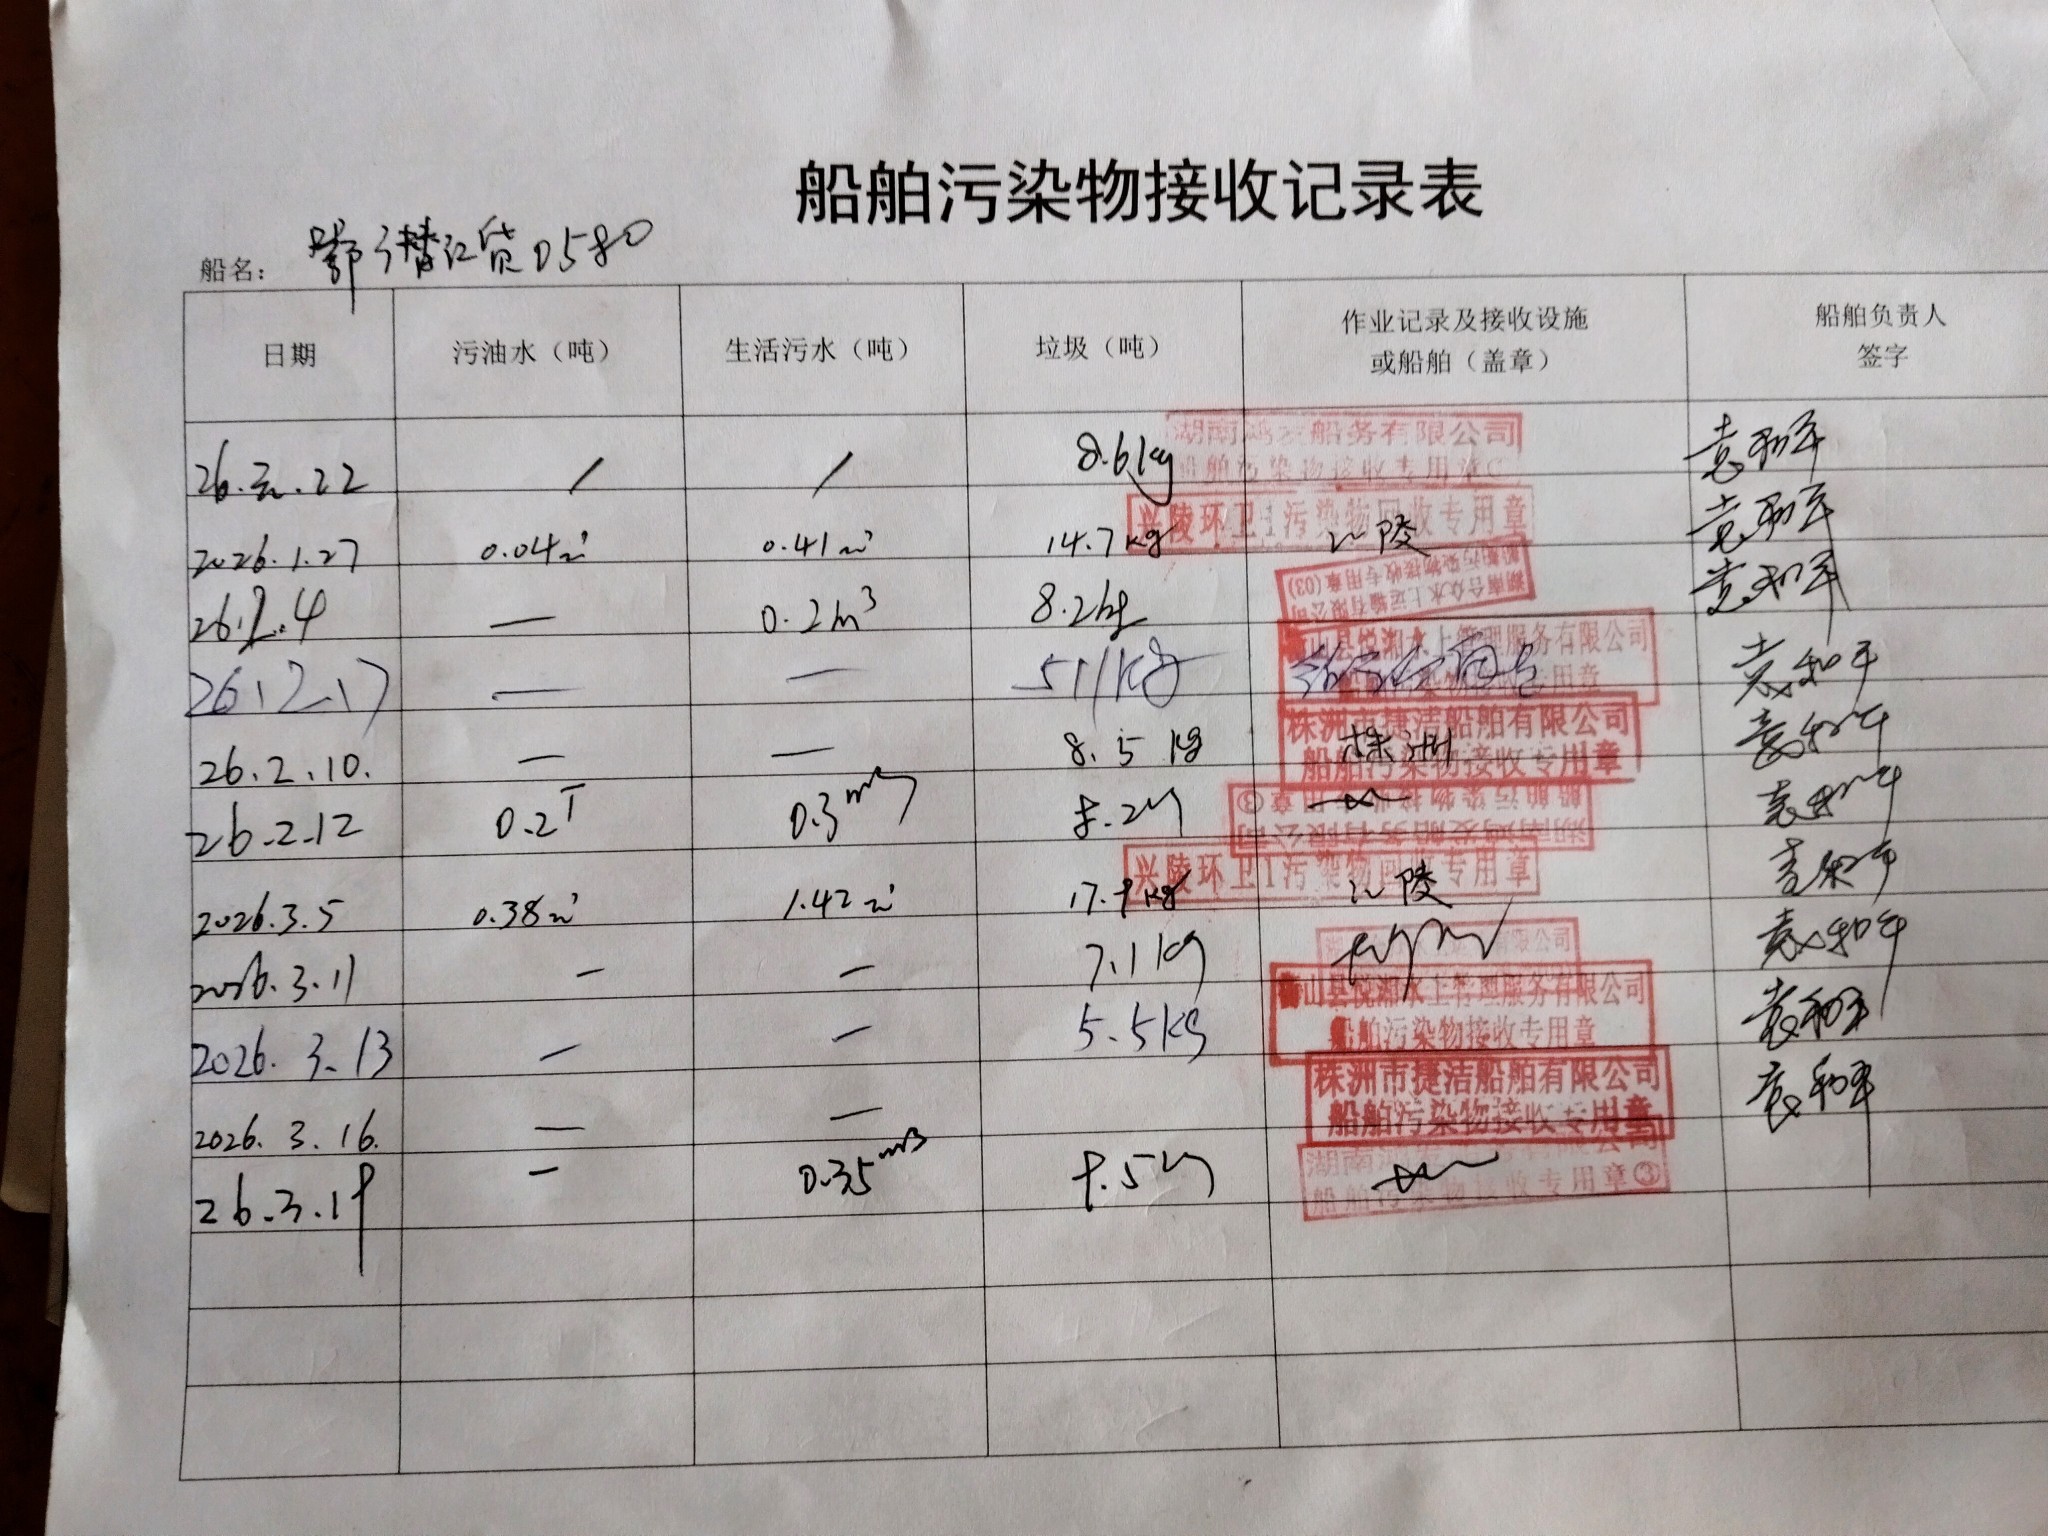 船舶污染物接收记录表
船名：鄂潜江货0580
日期 污油水（吨） 生活污水（吨） 垃圾（吨） 作业记录及接收设施或船舶（盖章） 船舶负责人签字
/ / 8.6kg 湖南鸿发船务有限公司 船舶污染物接收专用章
2026.1.27 0.04㎥ 0.41㎥ 14.7kg 兴陵环卫1污染物回收专用章 江陵
26.2.4 — 0.2m³ 8.2kg 湖南合众水上运输有限公司 船舶污染物接收专用章(03)
— — 山县悦湘水上管理服务有限公司 专用章
26.2.10. — — 8.5kg 株洲市捷洁船舶有限公司 船舶污染物接收专用章 株洲
26.2.12 0.2T 0.3m³ 湖南鸿发船务有限公司 船舶污染物接收专用章③
2026.3.5 0.38㎥ 1.42㎥ 兴陵环卫1污染物回收专用章 江陵
2026.3.11 — — 7.1kg 有限公司
2026.3.13 — — 5.5kg 山县悦湘水上管理服务有限公司 船舶污染物接收专用章
2026.3.16. — — 株洲市捷洁船舶有限公司 船舶污染物接收专用章
— 0.35m³ 湖南 有限公司 船舶污染物接收专用章③